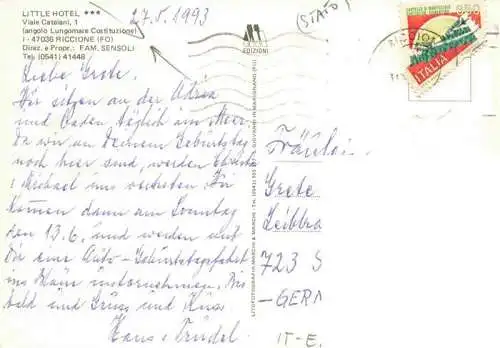 LITTLE HOTEL ***
Viale Catalani, 1
(angolo Lungomare Costituzione)
I - 47036 RICCIONE (FO)
Direz. e Propr.: FAM. SENSOLI
Tel. (0541) 41448
27.5.1993
(STATO)
EDIZIONI
850
ITALIA
Liebe Grete.
Wir sitzen an der Adria
und baden täglich im Meer.
Da wir an Deinem Geburtstag
noch hier sind, werden
Michael uns vertreten. Wir
kommen dann am Sonntag
den 13.6. und werden mit
Dir eine Auto-Geburtstagsfahrt
ins Blaue unternehmen. Bis
bald und Gruss und Kuss
Hans + Trudel
LITOFOTOGRAFIA MARCHI & MARCHI - Tel. (0541) 955 - S. GIOVANNI in MARIGNANO (FO)
Fräulein
Grete
723 S
-GERM
IT-E.